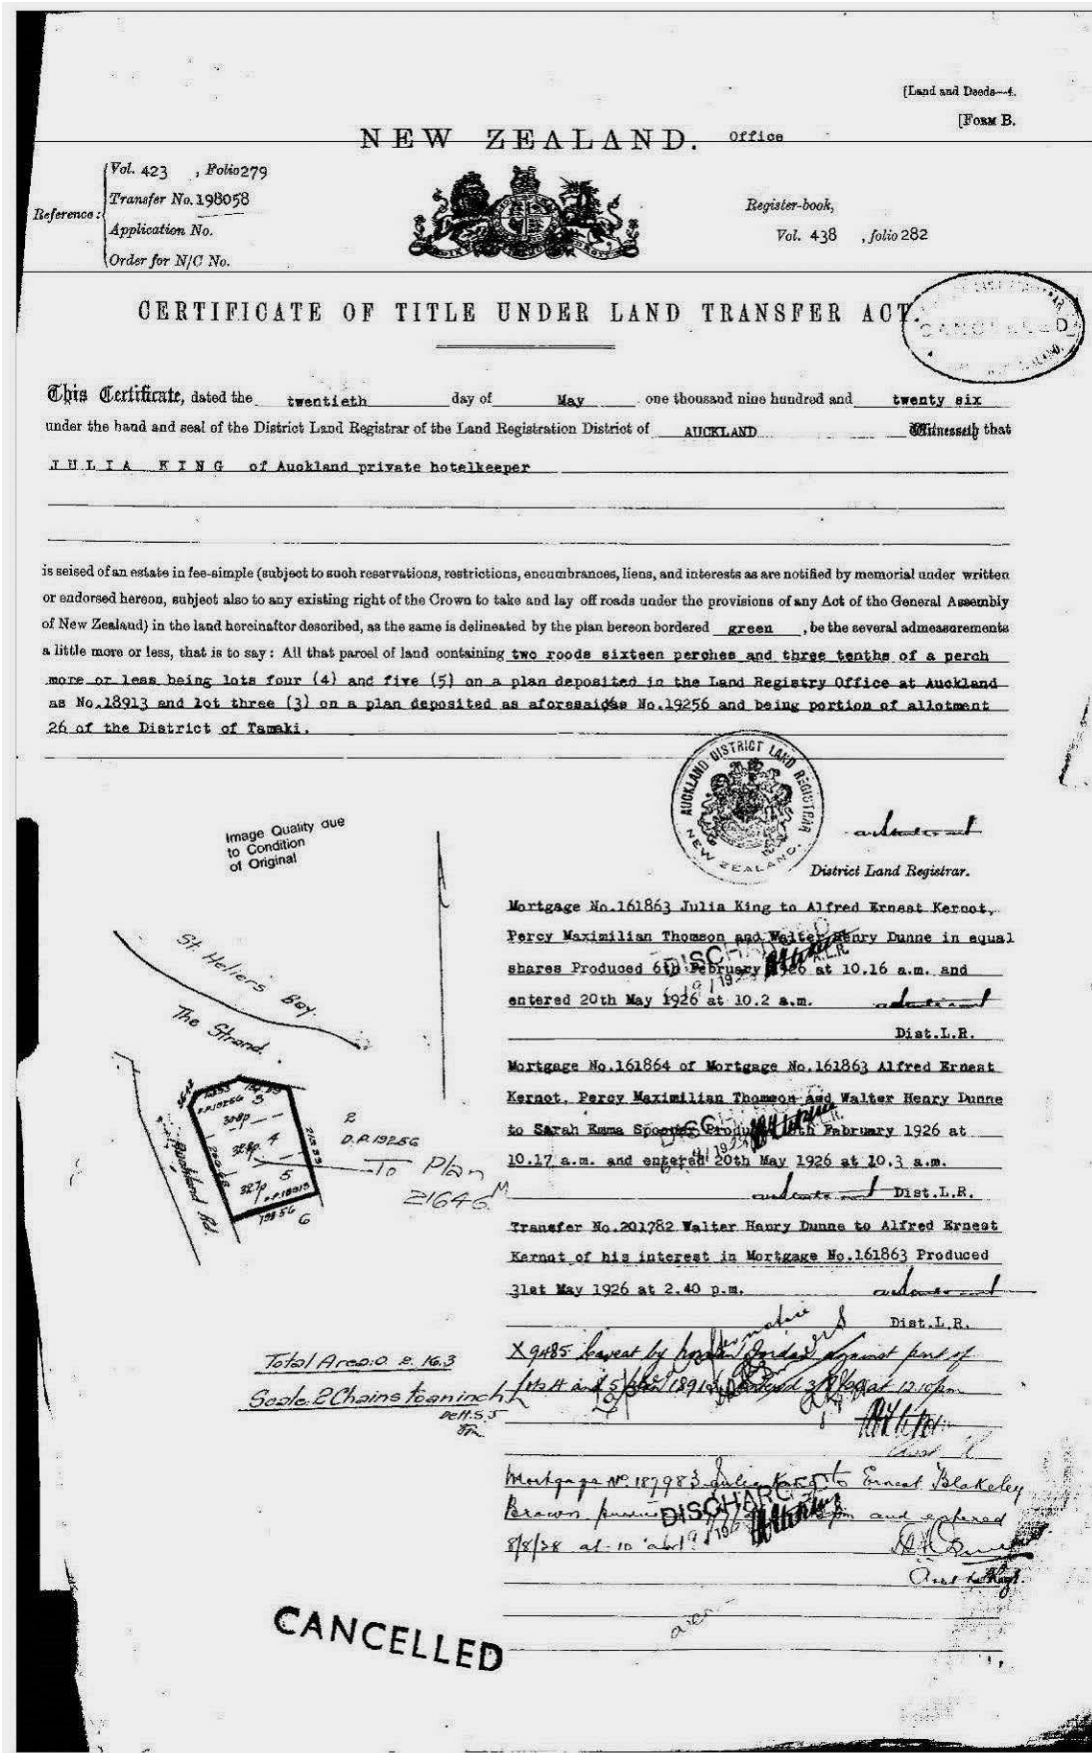 [Land and Deeds—4.
[FORM B.
NEW ZEALAND. Office
Reference:
Vol. 423 , Folio 279
Transfer No. 198058
Application No.
Order for N/C No.
Register-book,
Vol. 438 , folio 282
CERTIFICATE OF TITLE UNDER LAND TRANSFER ACT.
CANCELLED
This Certificate, dated the twentieth day of May one thousand nine hundred and twenty six
under the hand and seal of the District Land Registrar of the Land Registration District of AUCKLAND Witnesseth that
JULIA KING of Auckland private hotelkeeper
is seised of an estate in fee-simple (subject to such reservations, restrictions, encumbrances, liens, and interests as are notified by memorial under written
or endorsed hereon, subject also to any existing right of the Crown to take and lay off roads under the provisions of any Act of the General Assembly
of New Zealand) in the land hereinafter described, as the same is delineated by the plan hereon bordered green , be the several admeasurements
a little more or less, that is to say: All that parcel of land containing two roods sixteen perches and three tenths of a perch
more or less being lots four (4) and five (5) on a plan deposited in the Land Registry Office at Auckland
as No.18913 and lot three (3) on a plan deposited as aforesaid as No.19256 and being portion of allotment
26 of the District of Tamaki.
AUCKLAND DISTRICT LAND REGISTRAR
NEW ZEALAND.
District Land Registrar.
Image Quality due
to Condition
of Original
St. Heliers Bay
The Strand.
Auckland Rd.
D.P.19256 3
4
327p 5
D.P.18913
6
2
D.P.19256
To Plan
21646
Total Area: 0. 2. 16.3
Scale: 2 Chains to an inch
Mortgage No.161863 Julia King to Alfred Ernest Kernot,
Percy Maximilian Thomson and Walter Henry Dunne in equal
shares Produced 6th February 1926 at 10.16 a.m. and
entered 20th May 1926 at 10.2 a.m.
Dist.L.R.
DISCHARGED
A.L.R.
Mortgage No.161864 of Mortgage No.161863 Alfred Ernest
Kernot, Percy Maximilian Thomson and Walter Henry Dunne
to Sarah Emma Spooner Produced 6th February 1926 at
10.17 a.m. and entered 20th May 1926 at 10.3 a.m.
Dist.L.R.
Transfer No.201782 Walter Henry Dunne to Alfred Ernest
Kernot of his interest in Mortgage No.161863 Produced
31st May 1926 at 2.40 p.m.
Dist.L.R.
X 9485 Caveat by Jordan against part of
lots 4 and 5 plan 18913 entered at 12.10pm
Mortgage No. 187983 Julia King to Ernest Blakeley
Brown and entered
8/8/28 at 10
DISCHARGED
CANCELLED